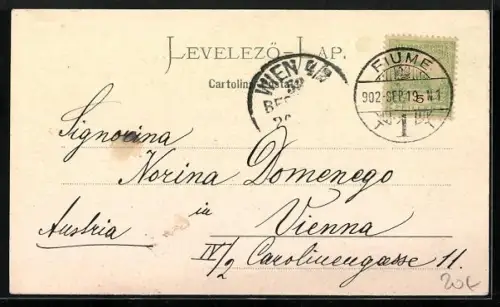 LEVELEZŐ-LAP.
Cartolina postale
WIEN 4/2
BES
FIUME
902-SEP.19 N.1
1
Signorina
Norina Domenego
in
Vienna
Austria
IV/2 Carolinengasse 11.
20€